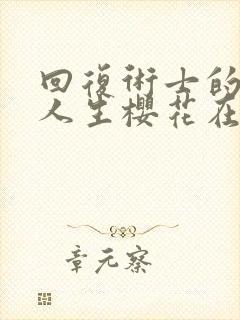 回復術士的
人生櫻花在
章元察